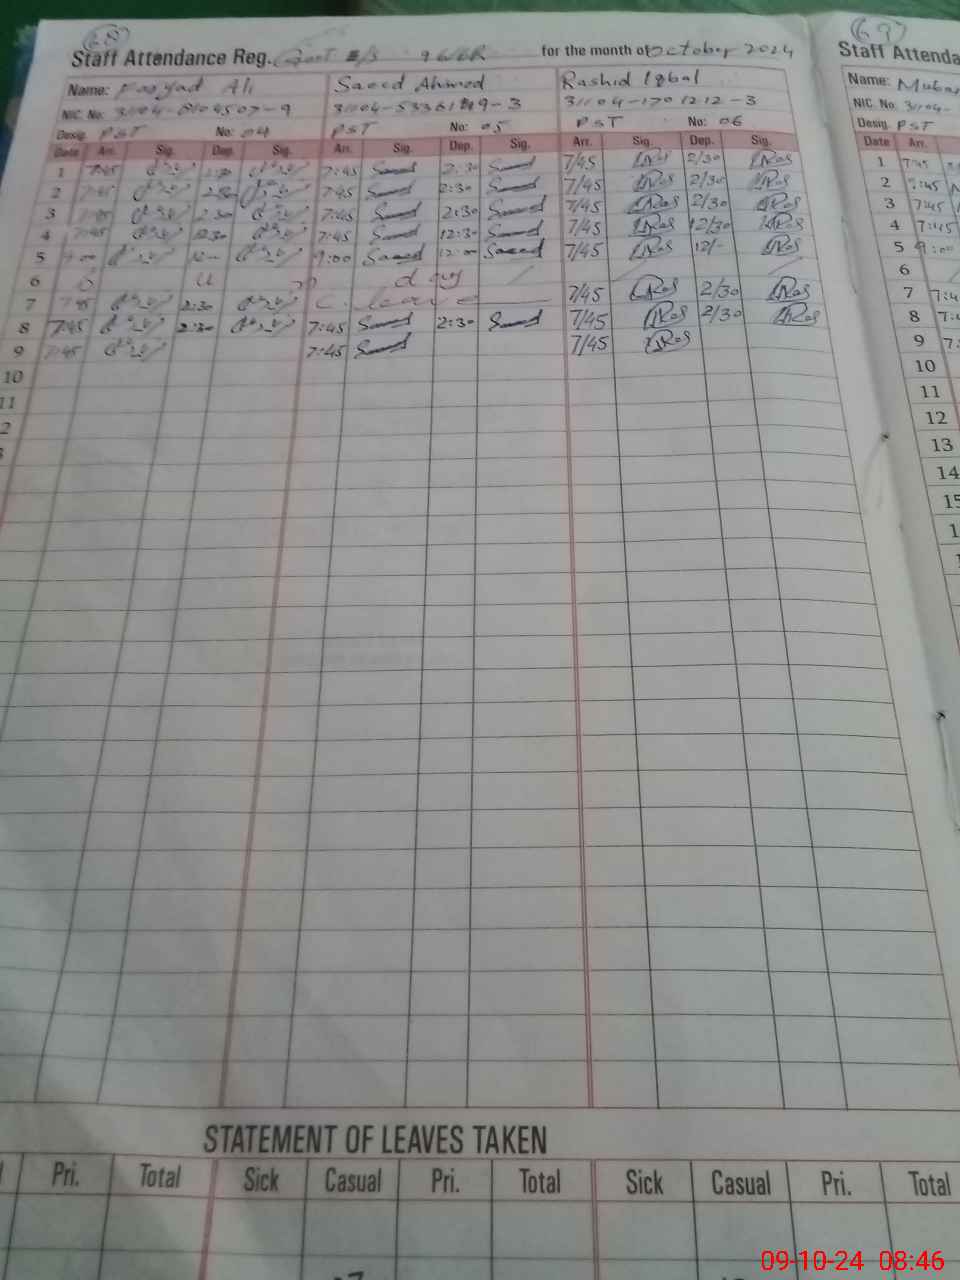 68
Staff Attendance Reg. Govt for the month of October 2024
Name: Ali Saeed Ahmed Rashid Iqbal
NIC. No: 31104-8104507-9 31104-5336149-3 31104-1701212-3
Desig. PST No: 04 PST No: 05 PST No: 06
Date Arr. Sig. Dep. Sig. Arr. Sig. Dep. Sig. Arr. Sig. Dep. Sig.
1 7:45 7:45 Saeed 2:30 Saeed 7/45 2/30
2 7:45 2:30 7:45 Saeed 2:30 Saeed 7/45 2/30
3 7:45 2:30 7:45 Saeed 2:30 Saeed 7/45 2/30
4 7:45 12:30 7:45 Saeed 12:30 Saeed 7/45 12/30
5 9:00 12:00 9:00 Saeed 12:00 Saeed 7/45 12/-
6 S u n d a y
7 7:45 2:30 C. leave 7/45 2/30
8 7:45 2:30 7:45 Saeed 2:30 Saeed 7/45 2/30
9 7:45 7:45 Saeed 7/45
10
11
2
STATEMENT OF LEAVES TAKEN
Pri. Total Sick Casual Pri. Total Sick Casual Pri. Total
69
Staff Attenda
Name:
NIC. No: 31104-
Desig. PST
Date Arr.
1 7:45
2 7:45
3 7:45
4 7:45
5 9:00
6
7 7:4
8 7:
9 7:
10
11
12
13
14
15
09-10-24 08:46